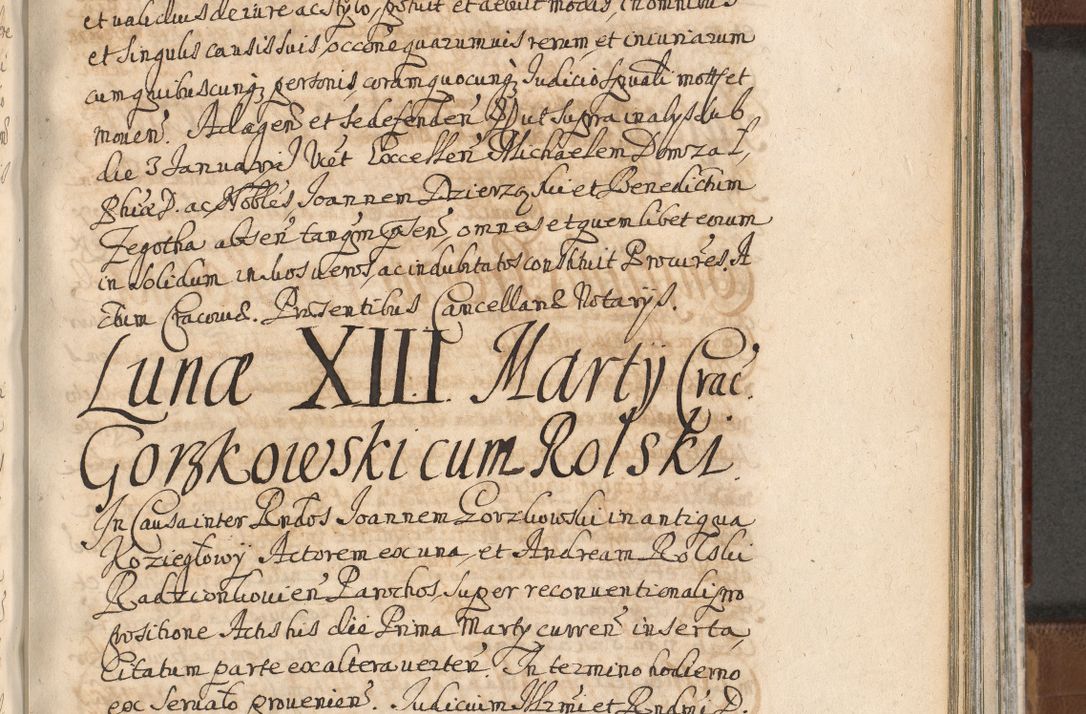 et validius de iure ac stylo, potuit et debuit modis, in omnibus
et singulis causis suis, occõne quarumvis rerum et iniuriarum
cum quibuscunq; personis, coram quocunq; Iudicio spuali mott et
moven. Ad agen et se defenden ut supra in alys sub
die 3 Ianuarii Vcet Excellen Michaelem Domzal,
Phiæ D. ac Nobles Ioannem Dzierzski et Benedictum
Zegotha absen tanqm psen, omnes et quemlibet eorum
in solidum in suos veros, ac indubitatos constituit Procures. A
ctum Cracoviæ. Præsentibus Cancellariæ Notarijs.
Lunæ XIII Martij Crac.
Gorzkowski cum Rolski.
In Causa inter Rndos Ioannem Gorzkowski in antiqua
Koziegłowy Actorem ex una, et Andream Rolski
Radzionkovien Parochos, super reconventionali pro
positione Actis his die Prima Marty curren inserta,
Citatum parte ex altera verten. In termino hodierno
ex servato provenien. Iudicium Illrmi et Rndmi D.